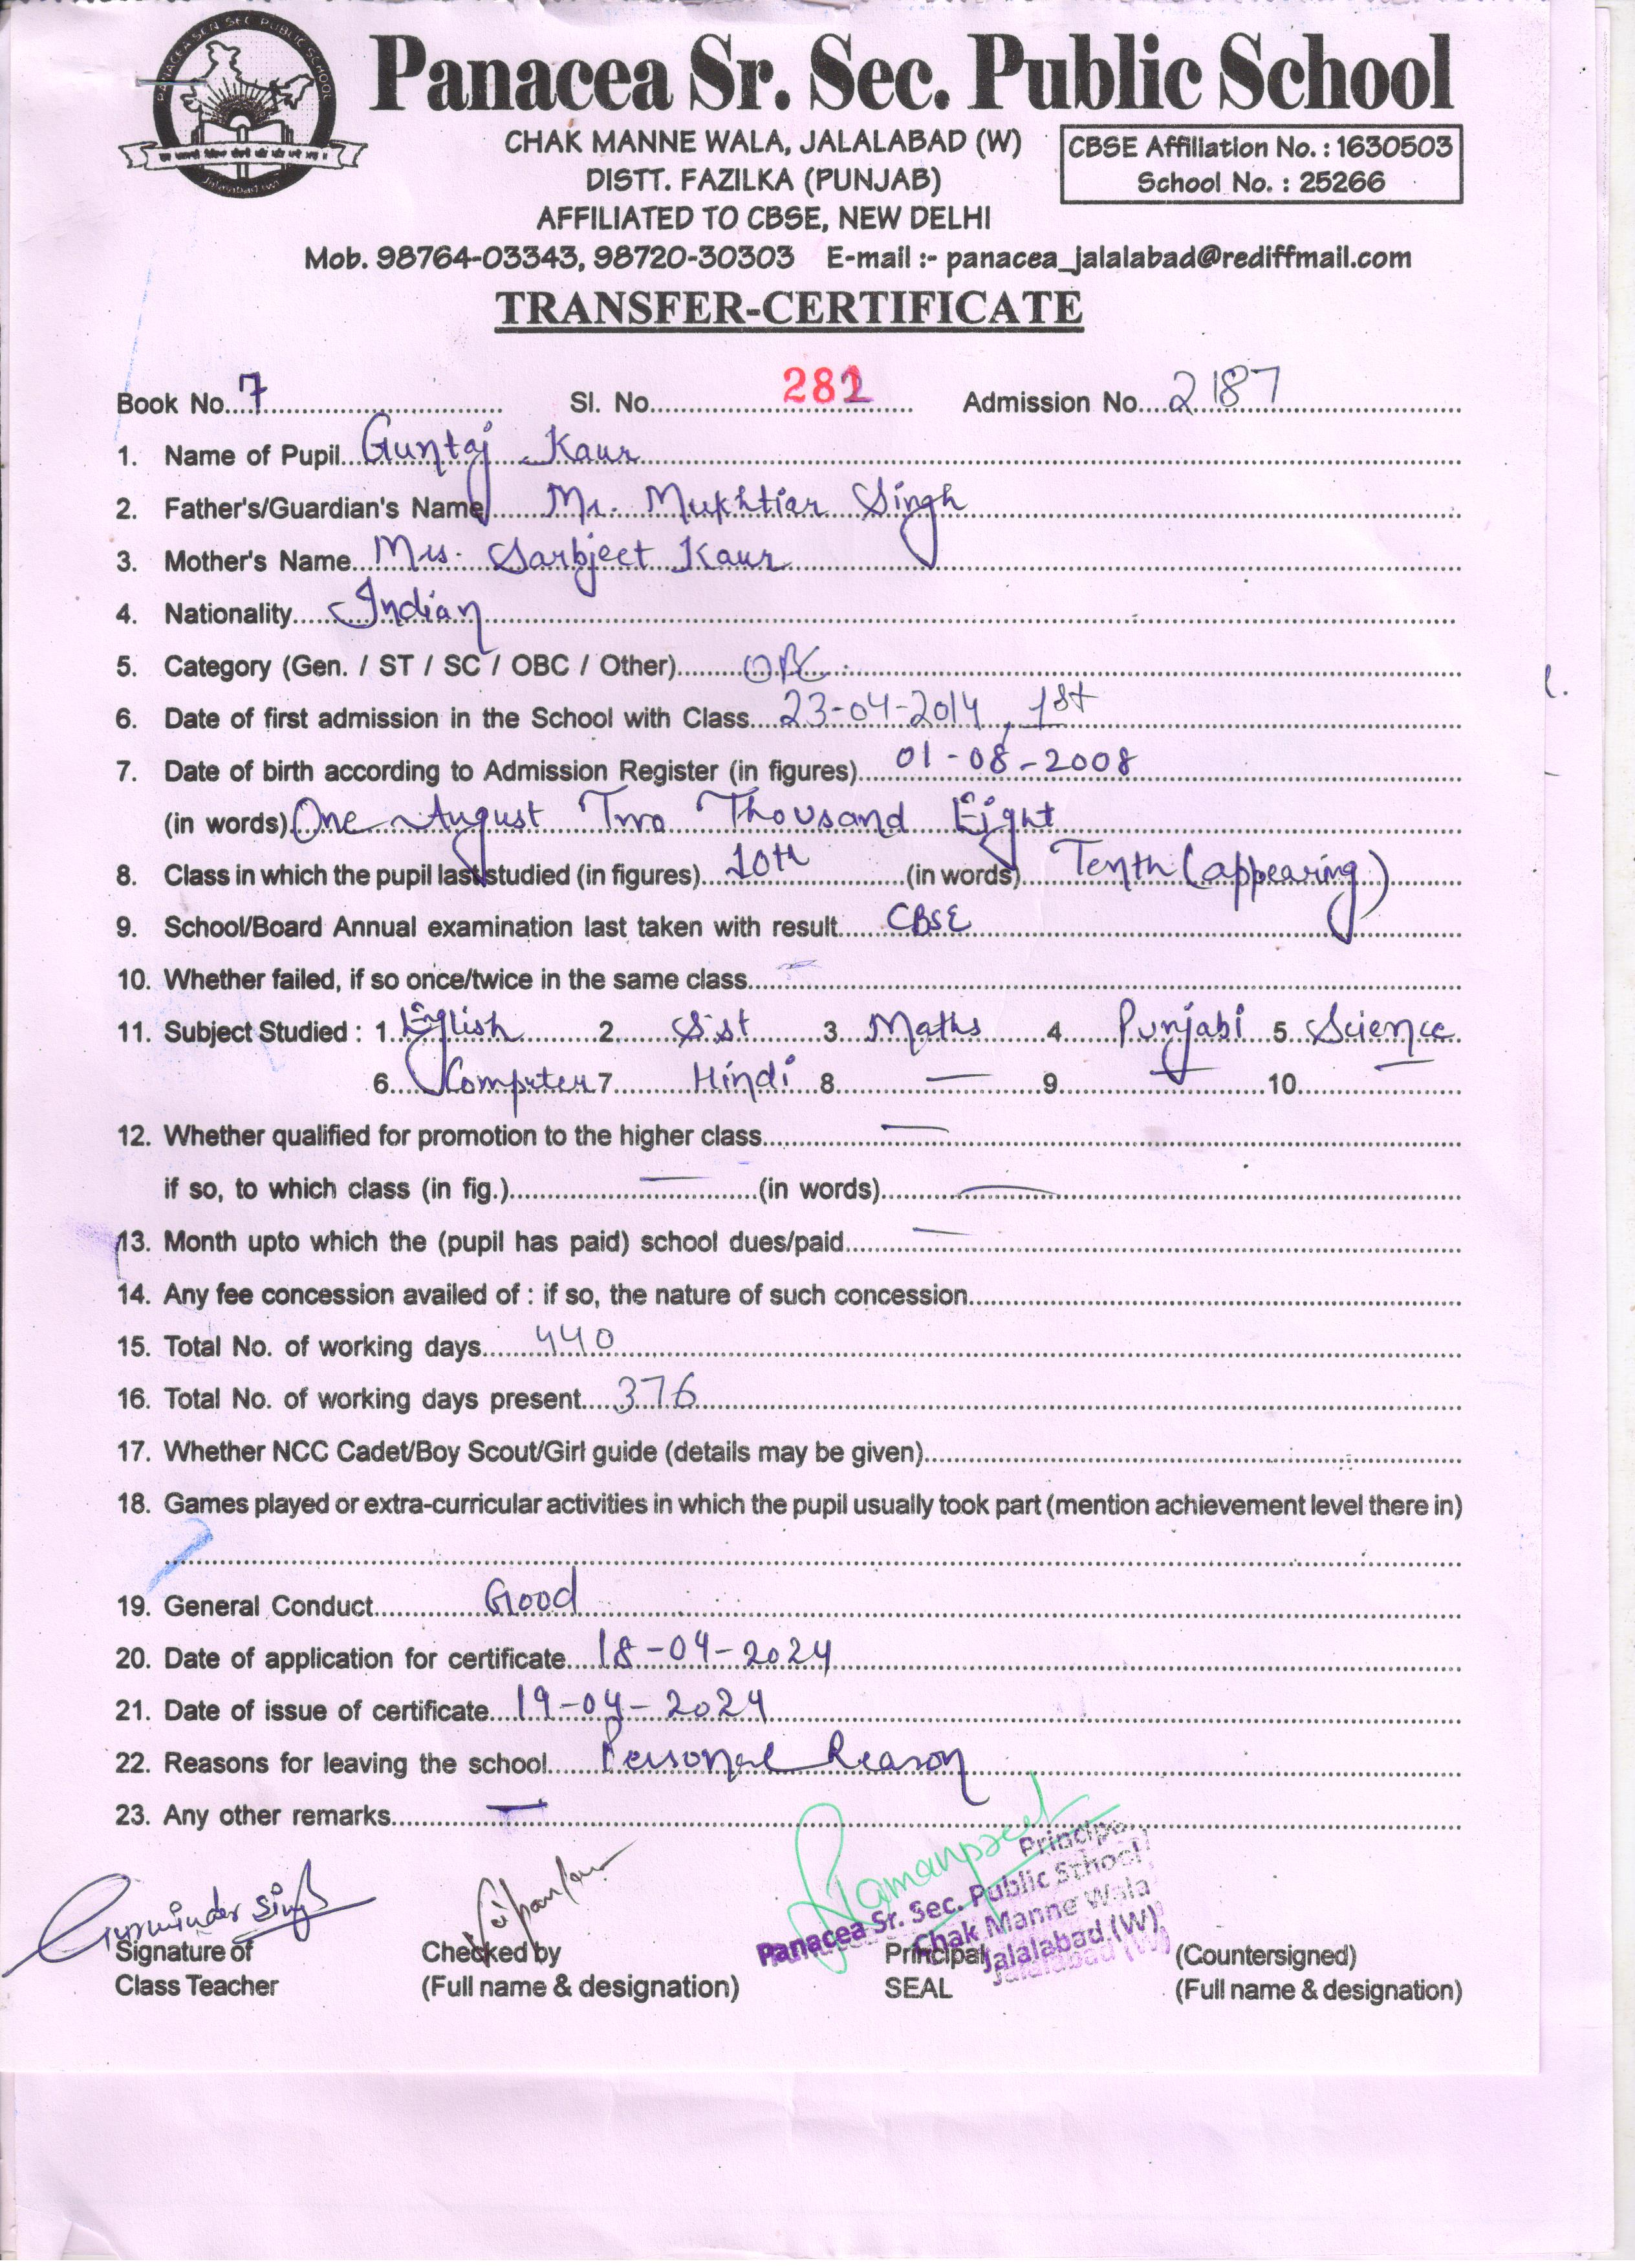 PANACEA SEN SEC PUBLIC SCHOOL
Jalalabad (W)
Panacea Sr. Sec. Public School
CHAK MANNE WALA, JALALABAD (W)
DISTT. FAZILKA (PUNJAB)
AFFILIATED TO CBSE, NEW DELHI
CBSE Affiliation No. : 1630503
School No. : 25266
Mob. 98764-03343, 98720-30303 E-mail :- panacea_jalalabad@rediffmail.com
TRANSFER-CERTIFICATE
Book No. 7 Sl. No. 282 Admission No. 2187
1. Name of Pupil Guntaj Kaur
2. Father's/Guardian's Name Mr. Mukhtiar Singh
3. Mother's Name Mrs. Sarbjeet Kaur
4. Nationality Indian
5. Category (Gen. / ST / SC / OBC / Other) OBC
6. Date of first admission in the School with Class 23-04-2014, 1st
7. Date of birth according to Admission Register (in figures) 01-08-2008
(in words) One August Two Thousand Eight
8. Class in which the pupil last studied (in figures) 10th (in words) Tenth (appearing)
9. School/Board Annual examination last taken with result CBSE
10. Whether failed, if so once/twice in the same class
11. Subject Studied : 1. English 2. S.st 3. Maths 4. Punjabi 5. Science
6. Computer 7. Hindi 8. — 9. — 10. —
12. Whether qualified for promotion to the higher class —
if so, to which class (in fig.) — (in words) —
13. Month upto which the (pupil has paid) school dues/paid —
14. Any fee concession availed of : if so, the nature of such concession
15. Total No. of working days 440
16. Total No. of working days present 376
17. Whether NCC Cadet/Boy Scout/Girl guide (details may be given)
18. Games played or extra-curricular activities in which the pupil usually took part (mention achievement level there in)
19. General Conduct Good
20. Date of application for certificate 18-04-2024
21. Date of issue of certificate 19-04-2024
22. Reasons for leaving the school Personal Reason
23. Any other remarks —
Gurwinder Singh
Ramanpreet
Principal
Panacea Sr. Sec. Public School
Chak Manne Wala
Jalalabad (W)
Signature of Checked by Principal (Countersigned)
Class Teacher (Full name & designation) SEAL (Full name & designation)